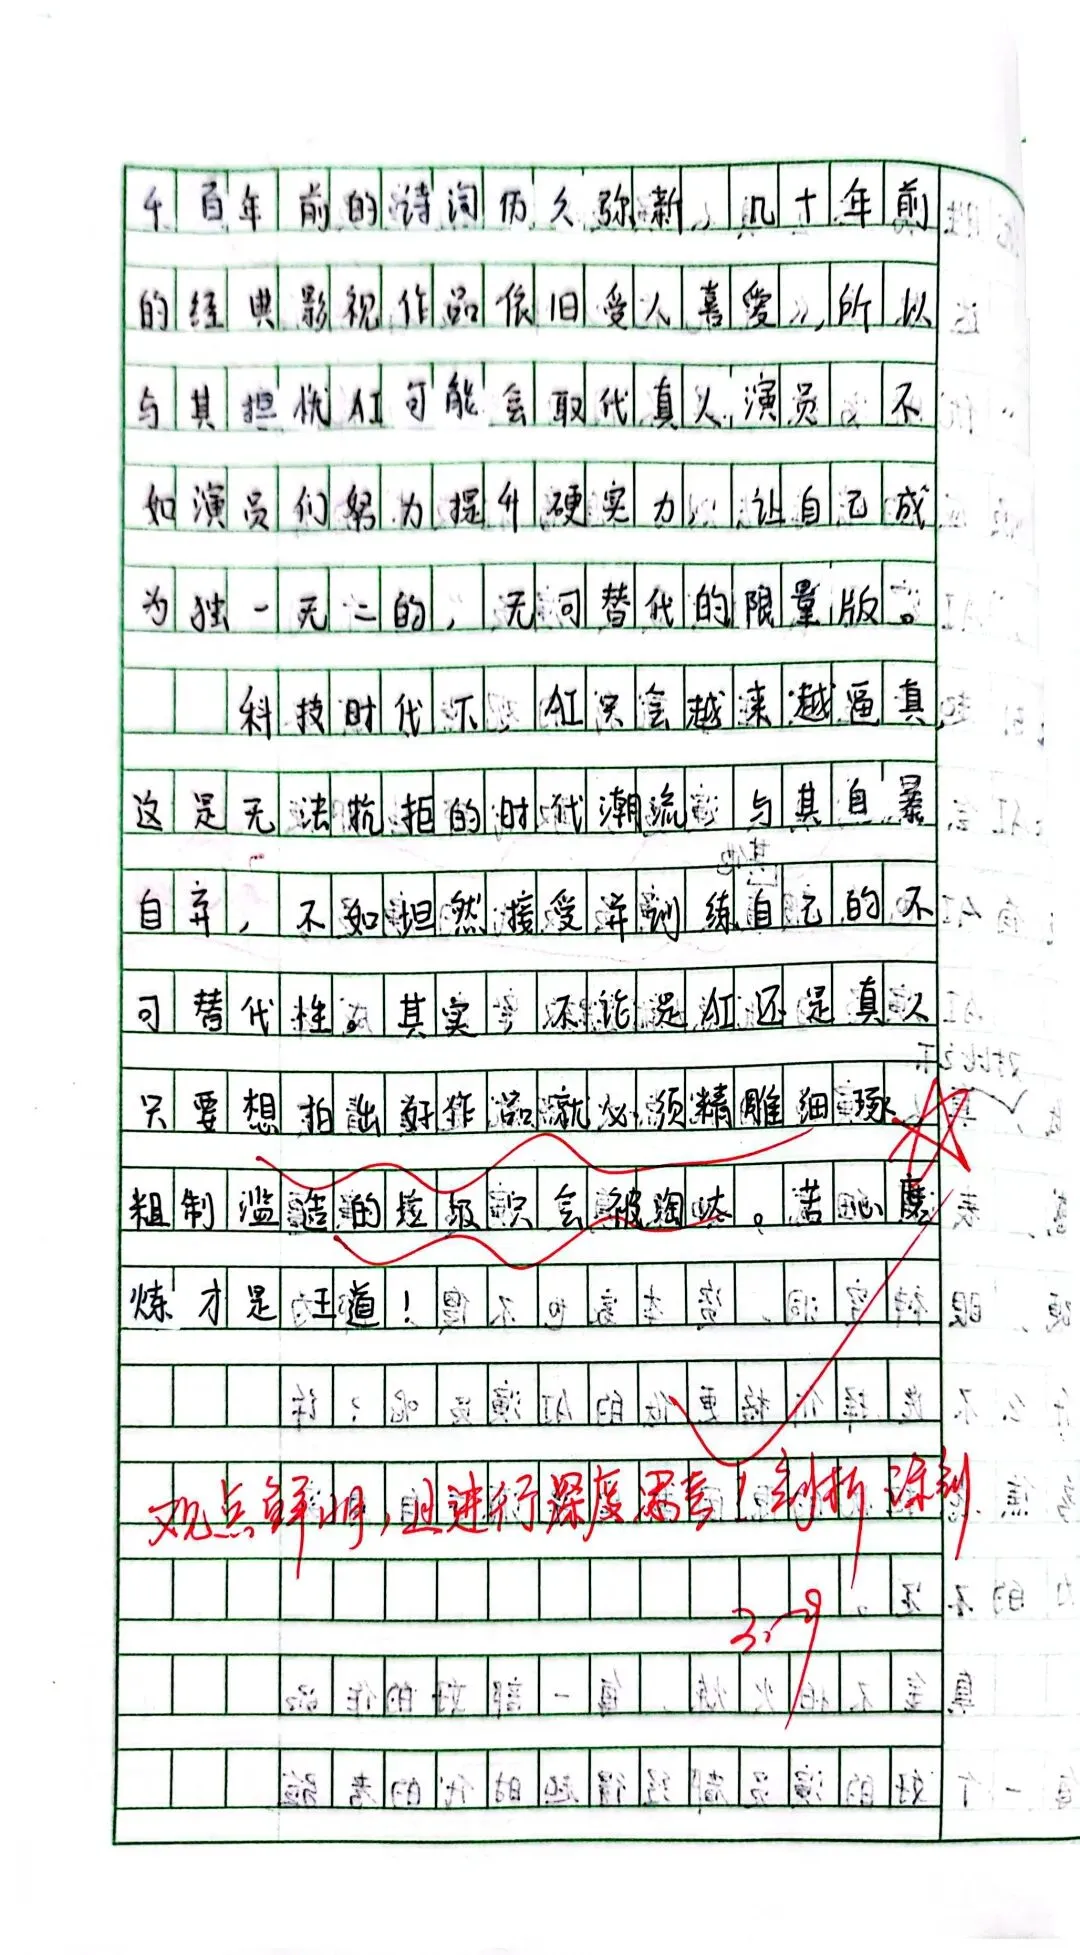 千百年前的诗词历久弥新，几十年前
的经典影视作品依旧受人喜爱，所以
与其担忧AI可能会取代真人演员，不
如演员们努力提升硬实力，让自己成
为独一无二的，无可替代的限量版。
科技时代下，AI实会越来越逼真，
这是无法抗拒的时代潮流，与其自暴
自弃，不如坦然接受并训练自己的不
可替代性。其实，不论是AI还是真人
只要想拍出好作品就必须精雕细琢
粗制滥造的垃圾只会被淘汰。苦心磨
炼才是王道！
观点鲜明，且进行深度思考！剖析深刻
3.9